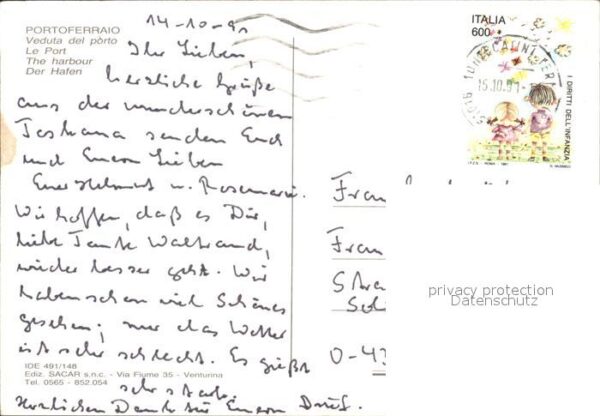 14-10-91
PORTOFERRAIO
Veduta del pòrto
Le Port
The harbour
Der Hafen
Ihr Lieben,
herzliche Grüße
aus der wunderschönen
Toskana senden Euch
und Euern Lieben
Euer Helmut u. Rosemarie.
Wir hoffen, daß es Dir,
liebe Tante Waltraud,
wieder besser geht. Wir
haben schon viel Schönes
gesehen; nur das Wetter
ist sehr schlecht. Es gießt
sehr stark.
Herzlichen Dank für Euern Brief.
IDE 491/148
Ediz. SACAR s.n.c. - Via Fiume 35 - Venturina
Tel. 0565 - 852.054
ITALIA
600
15.10.91
I DIRITTI DELL'INFANZIA
I.P.Z.S. - ROMA - 1991
Fran
Stra
privacy protection
Datenschutz